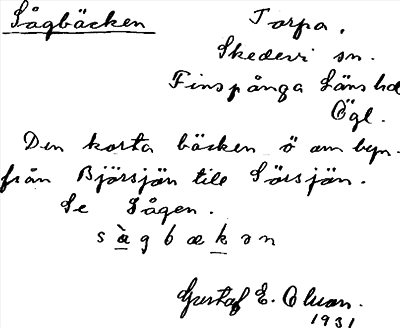 Sågbäcken
Torpa.
Skedevi sn.
Finspånga Länshd
Ögl.
Den korta bäcken ö om byn.
från Björsjön till Sörsjön.
Se Sågen.
sàgbækən
Gustaf E. Olson.
1931